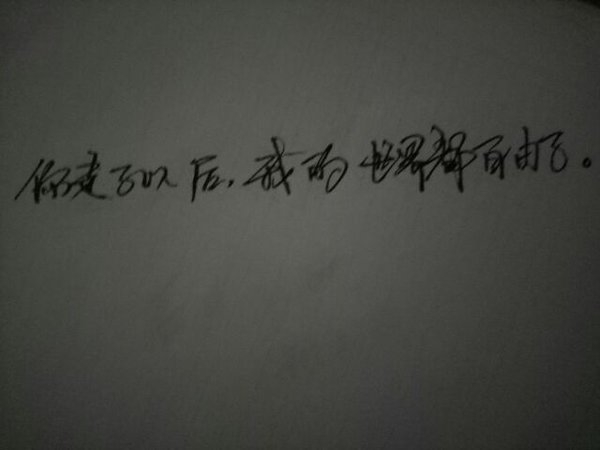 你走了以后，我的世界都自由了。